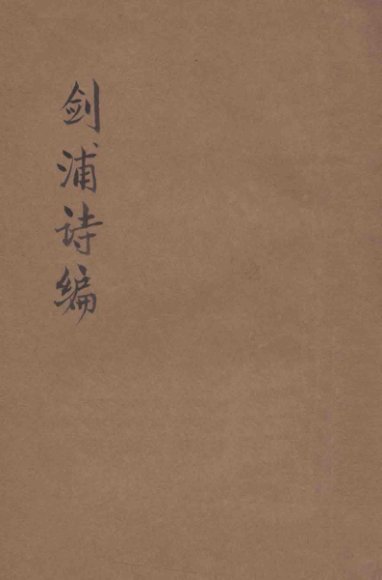 剑浦诗编